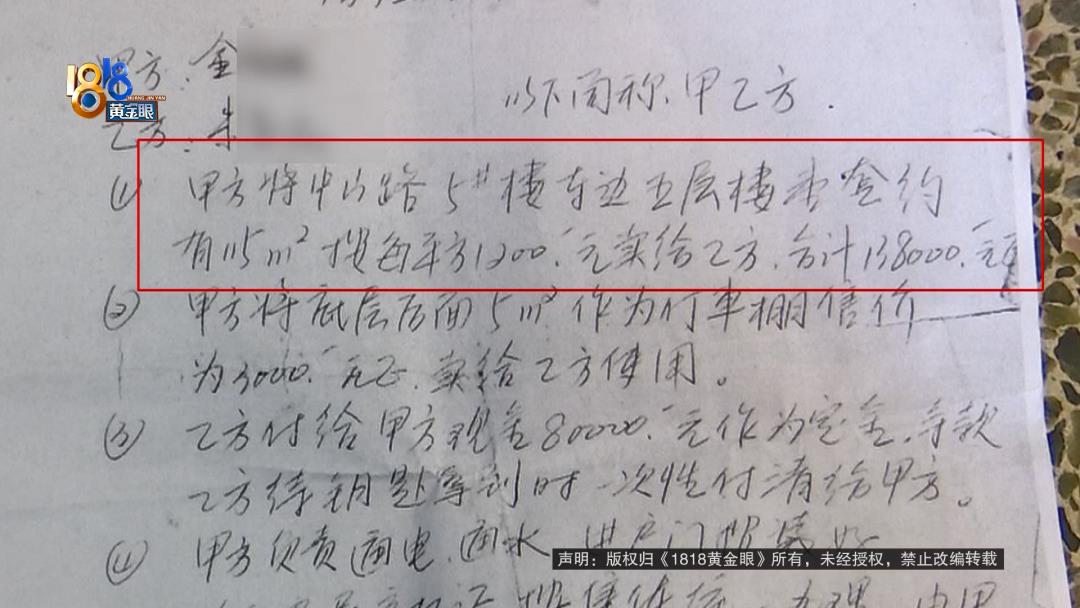 甲方：金
1818
HUANG JIN YAN
黄金眼
以下简称甲乙方.
乙方：朱
(1) 甲方将中山路5#楼东边五层楼壹套约
有115m²按每平方1200.元卖给乙方.合计138000.元正
(2) 甲方将底层后面5m²作为行车棚售价
为3000.元正.卖给乙方使用。
(3) 乙方付给甲方现金80000.元作为定金.余款
乙方待钥匙拿到时一次性付清给甲方。
(4) 甲方负责通电.通水.进户门
声明：版权归《1818黄金眼》所有，未经授权，禁止改编转载